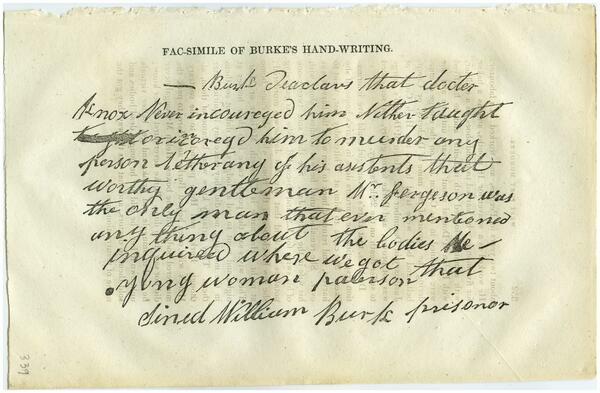 FAC-SIMILE OF BURKE'S HAND-WRITING.
— Burk deaclars that docter
Knox Never incoureged him Nither taught
or incoregd him to murder any
person Nether any of his asistents that
worthy gentleman Mr. Fergeson was
the only man that ever mentioned
any thing about the bodies He
inquired where we got that
yong woman paterson
Sined William Burk prisoner
339